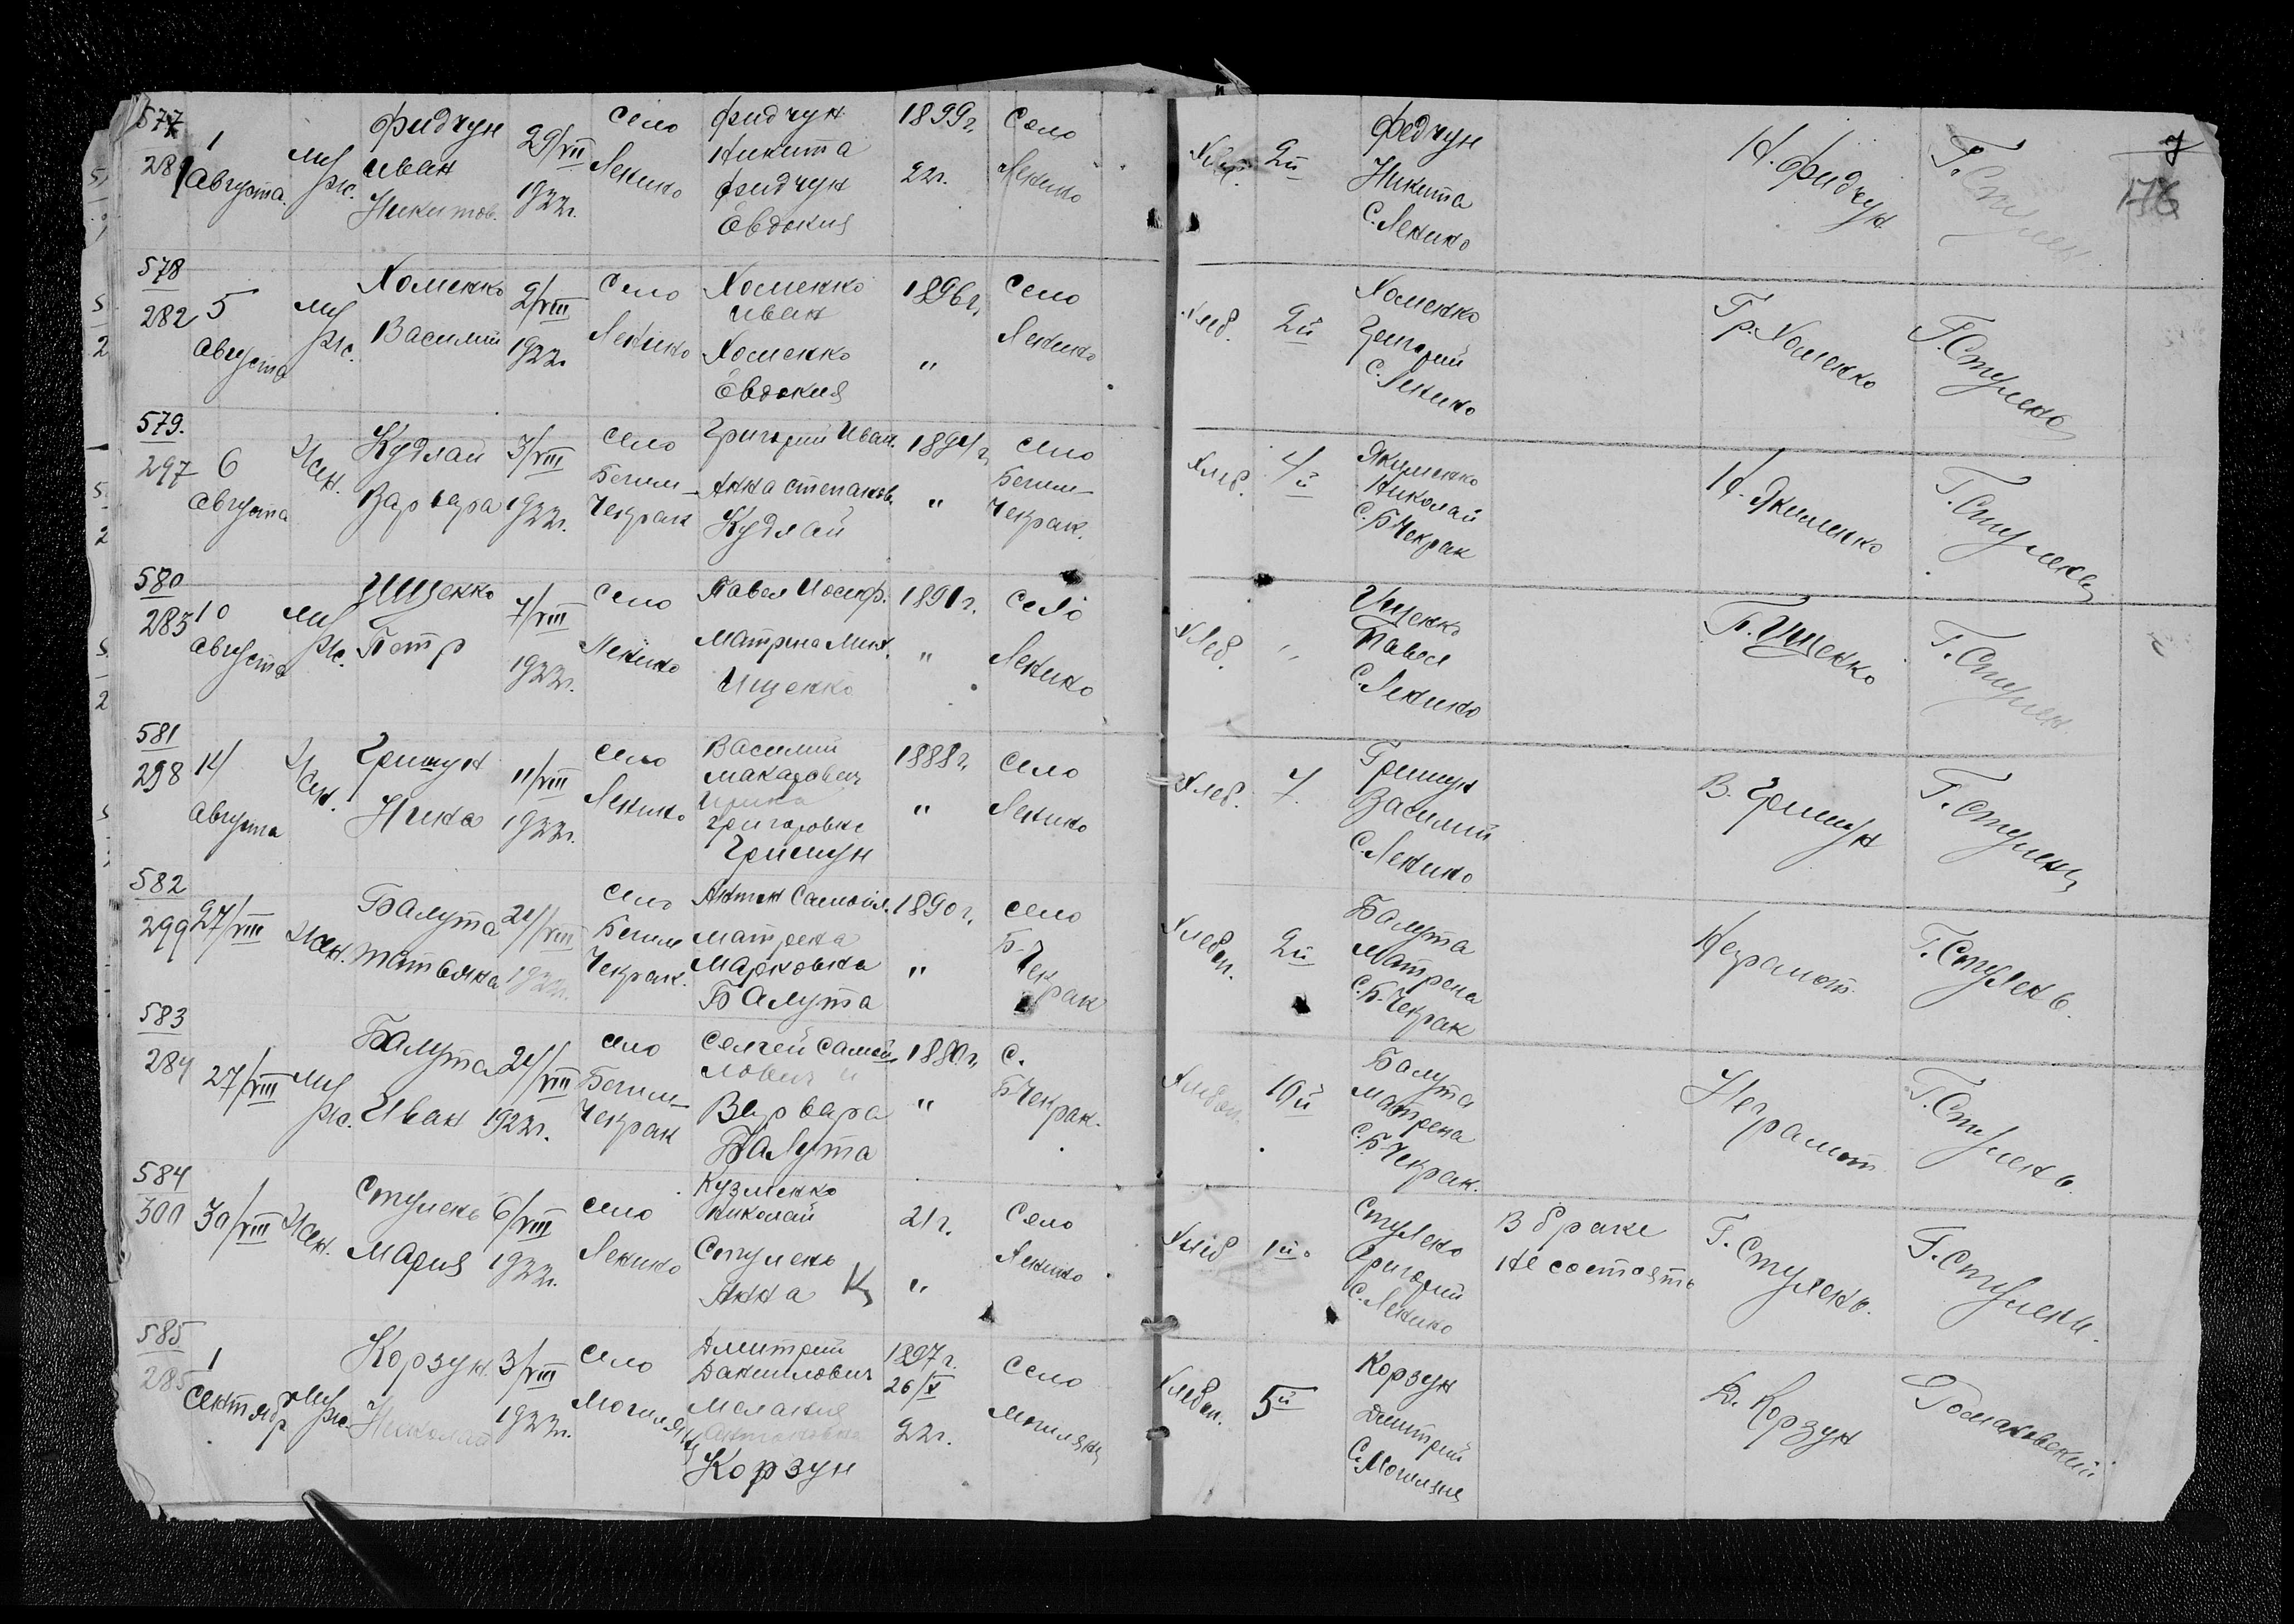 577
281
1
Августа.
Муж.
Фидчун
Иван
Никитов.
29/VII
1922г.
Село
Ленино
Фидчун
Никита
Фидчун
Евдокия
1899г.
22г.
Село
Ленино
2й
Федчун
Никита
С. Ленино
Н. Фидчун
7
176
578
282
5
Августа
Муж.
Хоменко
Василий
2/VIII
1922г.
Село
Ленино
Хоменко
Иван
Хоменко
Евдокия
1896г.
"
Село
Ленино
Хлеб.
2й
Хоменко
Григорий
С. Ленино
Гр. Хоменко
Г. Стулень
579.
297
6
Августа
Жен.
Кудлай
Варвара
3/VIII
1922г.
Село
Бегим-
Чекрак
Григорий Иван.
Анна Степанов.
Кудлай
1894г.
"
Село
Бегим-
Чекрак.
Хлеб.
4й
Якименко
Николай
С. Б Чекрак
Н. Якименко
Г. Стулень
580
283
10
Августа
Муж.
Ищенко
Петр
7/VIII
1922г.
Село
Ленино
Павел Иосиф.
Матрена Мих.
Ищенко
1891г.
"
Село
Ленино
Хлеб.
"
Ищенко
Павел
С. Ленино
П. Ищенко
Г. Стулень
581
298
14
Августа
Жен.
Гришун
Нина
11/VIII
1922г.
Село
Ленино
Василий
Макарович
Ирина
Григоровна
Гришун
1888г.
"
Село
Ленино
Хлеб.
7.
Гришун
Василий
С. Ленино
В. Гришун
Г. Стулень
582
299
27/VIII
Жен.
Балута
Татьяна
24/VIII
1922г.
Село
Бегим
Чекрак.
Антон Самойл.
Матрена
Марковна
Балута
1890г.
"
Село
Б.
Чекрак
Хлебоп.
2й
Балута
Матрена
С. Б. Чекрак
Неграмот.
Г. Стулень.
583
284
27/VIII
Муж.
Балута
Иван
24/VIII
1922г.
Село
Бегим-
Чекрак
Сергей Самой
лович и
Варвара
Балута
1880г.
"
С.
Б Чекрак.
Хлебоп.
10й
Балута
Матрена
С. Б. Чекрак.
Неграмот.
Г. Стулень.
584
300
30/VIII
Жен.
Стулень
Мария
6/VIII
1922г.
Село
Ленино
Кузменко
Николай
Стулень
Анна
21г.
"
Село
Ленино
Хлеб
1й.
Стулень
Григорий
С. Ленино
В браке
Не состоять
Г. Стулень.
Г. Стулень.
585
285
1
Сентябр
Муж.
Корзун
Николай
3/VIII
1922г.
Село
Дмитрий
Данилович
Мелания
Антоновна
Корзун
1897г.
26/V
22г.
Село
Хлебоп.
5й
Корзун
Дмитрий
Д. Корзун